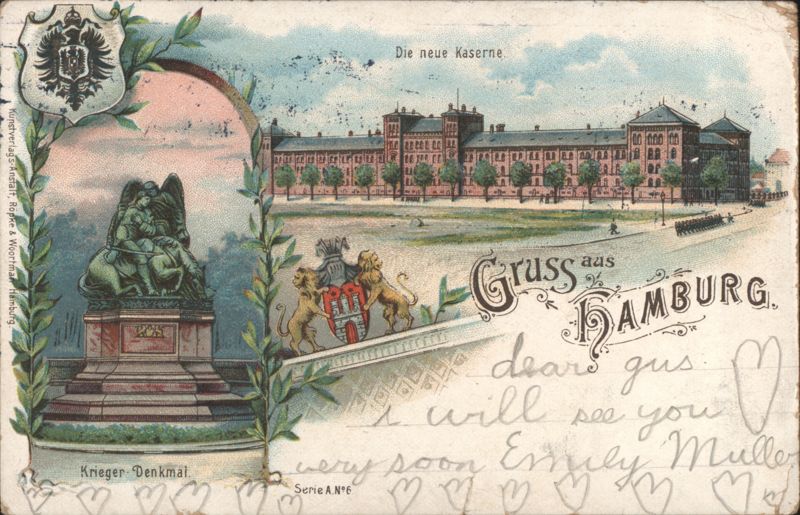 Die neue Kaserne.
Kunstverlags-Anstalt, Röpke & Woortman, Hamburg.
Gruss aus
Hamburg.
dear gus.
i will see you
very soon Emily Muller
Krieger-Denkmal.
Serie A. No 6